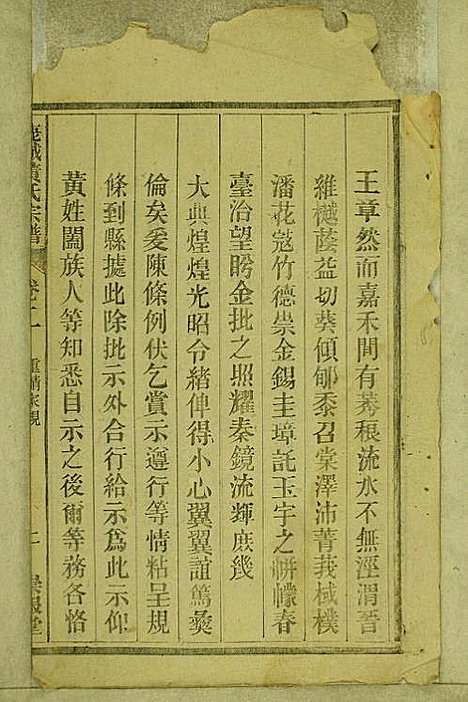 王章然而嘉禾間有莠稂流水不無涇渭吾
維樾蔭益切葵傾郇黍召棠澤沛菁莪棫樸
潘花寇竹德崇金錫圭璋託玉宇之帡幪春
臺治望盻金批之照耀秦鏡流輝庶幾
大典煌煌光昭令緒俾得小心翼翼誼篤彝
倫矣爰陳條例伏乞賞示遵行等情粘呈規
條到縣據此除批示外合行給示為此示仰
黃姓闔族人等知悉自示之後爾等務各恪
城黃氏宗譜 卷十一 重請家規